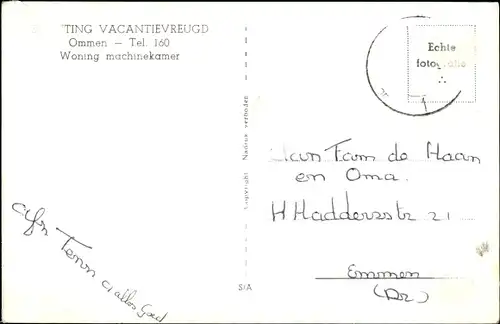 TING VACANTIEVREUGD
Ommen — Tel. 160
Woning machinekamer
Echte
Copyright Nadruk verboden
Fam de Haan
en Oma.
H Haddersstr 21
Emmen
(Dr)
S/A